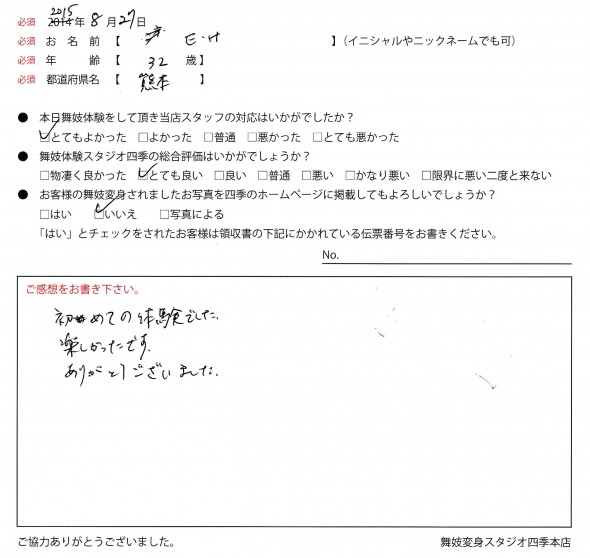 2015
必須 2014年 8月27日
必須 お名前【 E・H 】(イニシャルやニックネームでも可)
必須 年齢【 32 歳】
必須 都道府県名【 熊本 】
● 本日舞妓体験をして頂き当店スタッフの対応はいかがでしたか?
☑とてもよかった □よかった □普通 □悪かった □とても悪かった
● 舞妓体験スタジオ四季の総合評価はいかがでしょうか?
□物凄く良かった ☑とても良い □良い □普通 □悪い □かなり悪い □限界に悪い二度と来ない
● お客様の舞妓変身されましたお写真を四季のホームページに掲載してもよろしいでしょうか?
□はい ☑いいえ □写真による
「はい」とチェックをされたお客様は領収書の下記にかかれている伝票番号をお書きください。
No.
ご感想をお書き下さい。
初めての体験でした。
楽しかったです。
ありがとうございました。
ご協力ありがとうございました。 舞妓変身スタジオ四季本店